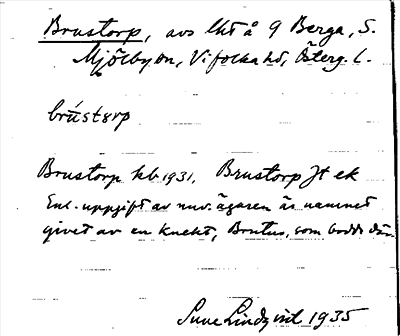 Brustorp, avs lht å 9 Berga, S.
Mjölby sn, Vifolka hd, Österg. l.
brùstorp
Brustorp kb 1931. Brustorp Jt ek
Enl. uppgift av nuv. ägaren är namnet
givet av en knekt, Brutus, som bodde där.
Sune Lindqvist 1935